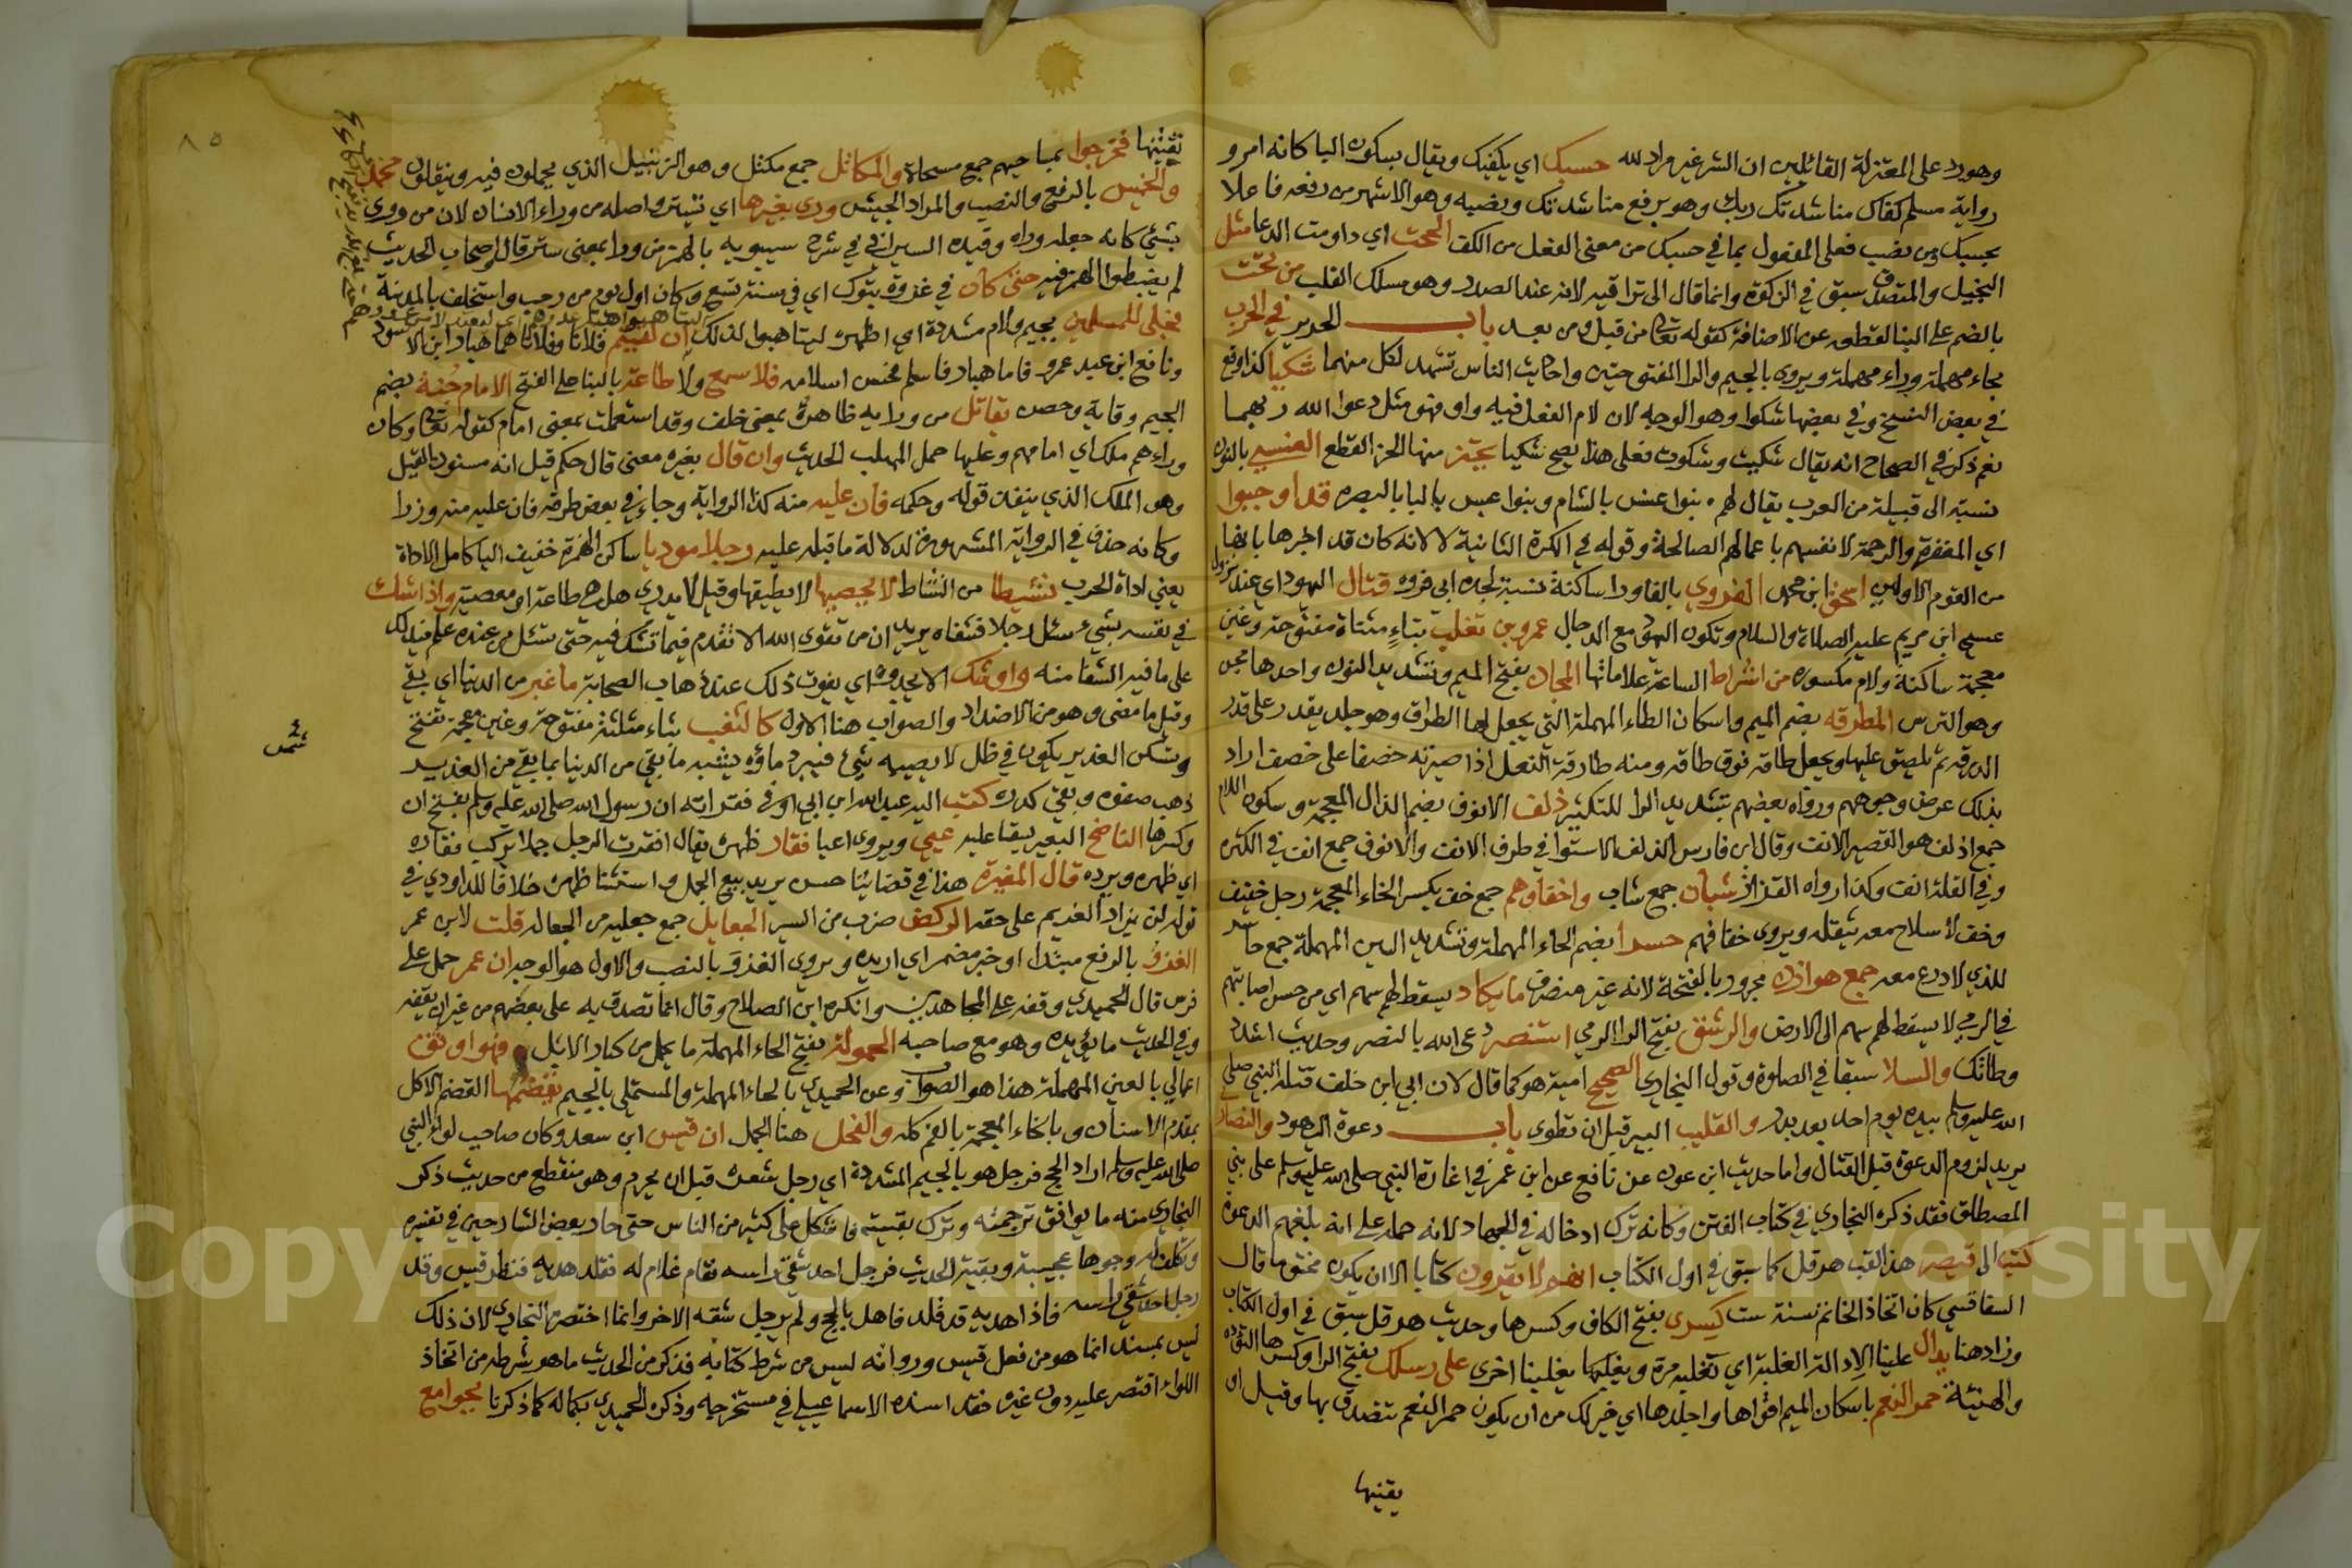 وهورد على المعتزلة القائلين ان الشر غير مراد لله حسبك اي يكفيك ويقال بسكون البا كانه امر و
رواية مسلم كفاك مناشدتك ربك وهو برفع مناشدتك ونصبه وهو الاشهر من رفعه فاعلا
بحسبك ومن نصب فعلى المفعول بما في حسبك من معنى الفعل من الكف الححت اي داومت الدعا مثل
البخيل والمتصدق سبق في الزكوة وانما قال الى تراقيه لانه عند الصدر وهو مسلك القلب من تحت
بالضم على البنا لقطعه عن الاضافة كقوله تعالى من قبل ومن بعد باب الحرير في الحرب
بحاء مهملة وراء مهملة ويروى بالجيم والرا المفتوحتين واحاديث الناس تشهد لكل منهما شكيا كذا وقع
في بعض النسخ وفي بعضها شكوا وهو الوجه لان لام الفعل فيه واو فهو مثل دعوا الله ربهما
نعم ذكر في الصحاح انه يقال شكيت وشكوت فعلى هذا يصح شكيا يحتز منها الحز القطع العنسي بالنون
نسبة الى قبيلة من العرب يقال لهم بنوا عنس بالشام وبنوا عبس بالبا بالبصره قد اوجبوا
اي المغفرة والرحمة لانفسهم باعمالهم الصالحة وقوله في الكرة الثانية لا لانه كان قد اخبرها بانها
من القوم الاولين اسحق ابن محمد الفروي بالفا ورا ساكنة نسبة لجده ابى فروه قتال اليهود اي عند نزول
عيسى ابن مريم عليه الصلاة والسلام وتكون اليهود مع الدجال عمرو بن تغلب بتاء مثناة مفتوحة وغين
معجمة ساكنة ولام مكسوره من اشراط الساعة علاماتها المجان بفتح الميم وتشديد النون واحدها مجن
وهو الترس المطرقه بضم الميم واسكان الطاء المهملة التي يجعل لها الطراق وهو جلد يقدر على قدر
الدرقه ثم تلصق عليها ويجعل طاقه فوق طاقه ومنه طارقة النعل اذا صيرته خصفا على خصف اراد
بذلك عرض وجوههم ورواه بعضهم بتشديد الرا للتكثير ذلف الانوف بضم الذال المعجمة وسكون اللام
جمع اذلف هو القصير الانف وقال ابن فارس الذلف الاستوا في طرف الانف والانوف جمع انف في الكثره
وفي القلة انف وكذا رواه القزاز شبان جمع شاب واخفاوهم جمع خف بكسر الخاء المعجمة رجل خفيف
وخف لا سلاح معه يثقله ويروى خفافهم حسرا بضم الحاء المهملة وتشديد السين المهملة جمع حاسر
للذي لا درع معه جمع هوازن مجرور بالفتحة لانه غير منصرف ما يكاد يسقط لهم سهم اي من حسن اصابتهم
في الرمي لا يسقط لهم سهم الى الارض والرشق بفتح الرا الرمي استنصر دعى الله بالنصر وحديث اشدد
وطاتك والسلا سبقا في الصلوة وقول البخاري الصحيح امية هو كما قال لان ابي ابن خلف قتله النبي صلى
الله عليه وسلم بيده يوم احد بعد بدر والقليب البير قبل ان تطوى باب دعوة اليهود والنصار
يريد لزوم الدعوة قبل القتال واما حديث ابن عون عن نافع عن ابن عمر في اغارة النبي صلى الله عليه وسلم على بني
المصطلق فقد ذكره البخاري في كتاب الفتن وكانه ترك ادخاله في الجهاد لانه حمله على انه بلغهم الدعوة
كتب الى قيصر هذا لقب هرقل كما سبق في اول الكتاب انهم لا يقرون كتابا الا ان يكون مختوما قال
السفاقسي كان اتخاذ الخاتم سنة ست كسرى بفتح الكاف وكسرها وحديث هرقل سبق في اول الكتاب
وزاد هنا يدال علينا الادالة الغلبة اي تغلبه مرة ويغلبها يغلبنا اخرى على رسلك بفتح الرا وكسرها التؤده
والهنيئة حمر النعم باسكان الميم اقواها واجلدها اي خير لك من ان يكون حمر النعم تتصدق بها وقيل ان
يقنيها
تقنيها فخرجوا بمساحيهم جمع مسحاة والمكاتل جمع مكتل وهو الزنبيل الذي يحملون فيه وينقلون محمد
والخميس بالرفع والنصب والمراد الجيش ورى بغيرها اي تستر واصله من وراء الانسان لان من ورى
بشئ كانه جعله وراه وقيده السيرافي في شرح سيبويه بالهمز من ورا بمعنى ستر قال واصحاب الحديث
لم يضبطوا الهمز فيه حتى كان في غزوة تبوك اي في سنة تسع وكان اول يوم من رجب واستخلف بالمدينة
فجلى للمسلمين بجيم ولام مشددة اي اظهره ليتاهبوا لذلك ان لقيتم فلانا وفلانا هما هبار ابن الاسود
ونافع ابن عبد عمرو فاما هبار فاسلم فحسن اسلامه فلا سمع ولا طاعة بالبنا على الفتح الامام جنة بضم
الجيم وقاية وحصن تقاتل من ورايه ظاهره بمعنى خلف وقد استعملت بمعنى امام كقوله تعالى وكان
وراءهم ملك اي امامهم وعليها حمل المهلب الحديث وان قال بغيره معنى قال حكم قيل انه مستق من القيل
وهو الملك الذي ينفذ قوله وحكمه فان عليه منه كذا الرواية وجاء في بعض طرقه فان عليه منه وزرا
وكانه حذف في الرواية المشهورة لدلالة ما قبله عليه رجلا موديا ساكن الهمزة خفيف اليا كامل الاداة
يعني اداة الحرب نشيطا من النشاط لا يحصيها لا يطيقها وقيل لا يدري هل هي طاعة او معصية واذا شك
في نفسه بشئ سئل رجلا فشفاه يريد ان من تقوى الله الا تقدم فيما تشك فيه حتى تسئل من عنده علم فيدلك
على ما فيه الشفا منه واوشك الا يجدوه اي يفوت ذلك عند ذهاب الصحابة ما غبر من الدنيا اي بقي
وقيل ما مضى وهو من الاضداد والصواب هنا الاول كالثغب بثاء مثلثة مفتوحة وغين معجمة تفتح
وتسكن الغدير يكون في ظل لا يصيبه شئ فيبرد ماؤه يشبه ما بقي من الدنيا بما بقي من الغدير
ذهب صفوه وبقي كدره كتب اليه عبد الله ابن ابي اوفى فقراته ان رسول الله صلى الله عليه وسلم بفتح ان
وكسرها الناضح البعير يسقا عليه عيي ويروى اعيا فقار ظهره يقال افقرت الرجل جملا تركب فقاره
اي ظهره ويرده قال المغيرة هذا في قضائنا حسن يريد بيع الجمل واستثنا ظهره خلافا للداودي في
قوله ان يزاد الغريم على حقه الركض ضرب من السير الجعايل جمع جعيله من الجعاله قلت لابن عمر
الغزو بالرفع مبتدا او خبر مضمر اي اريده ويروى الغزو بالنصب والاول هو الوجه ان عمر حمل على
فرس قال الحميدي وقفه على المجاهدين وانكره ابن الصلاح وقال انما تصدق به على بعضهم من غير ان يقفه
وفي الحديث ما يؤيده وهو مع صاحبه الحمولة بفتح الحاء المهملة ما يحمل من كبار الابل فهو اوثق
اعمالي بالعين المهملة هذا هو الصواب وعن الحميدي بالحاء المهملة والمستملي بالجيم يقضمها القضم الاكل
بمقدم الاسنان وبالخاء المعجمة بالفم كله والفحل هنا الجمل ان قيس ابن سعد وكان صاحب لواء النبي
صلى الله عليه وسلم اراد الحج فرجل هو بالجيم المشددة اي رجل شعره قبل ان يحرم وهو منقطع من حديث ذكر
البخاري منه ما يوافق ترجمته وترك بقيته فاشكل على كثير من الناس حتى حار بعض الشارحين في تفسيره
وتكلف له وجوها عجيبة وبقية الحديث فرجل احد شقي راسه فقام غلام له فقلد هديه فنظر قيس وقد
رجل احد شقي راسه فاذا هديه قد قلد فاهل بالحج ولم يرجل شقه الاخر وانما اختصره البخاري لان ذلك
ليس بمسند انما هو من فعل قيس وروايه ليس من شرط كتابه فذكر من الحديث ما هو شرطه من اتخاذ
اللواء اقتصر عليه دون غيره فقد اسنده الاسماعيلي في مستخرجه وذكره الحميدي بكماله كما ذكرنا بجوامع
٨٥
Copyright © King Saud University